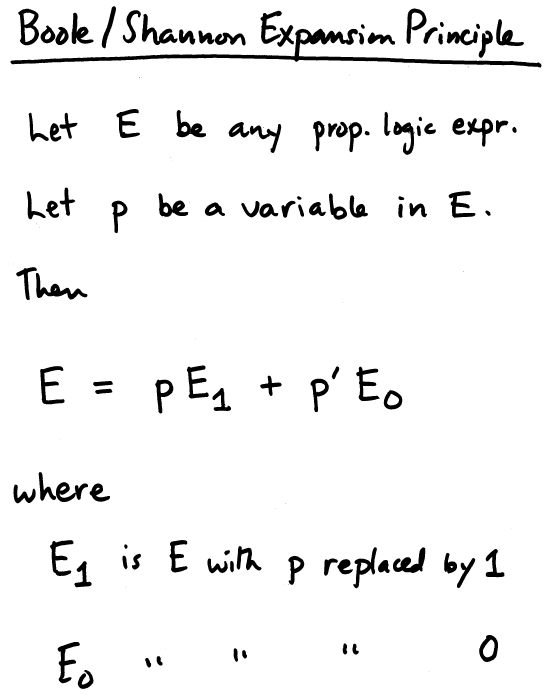 Boole / Shannon Expansion Principle
Let E be any prop. logic expr.
Let p be a variable in E.
Then
E = p E₁ + p′ E₀
where
E₁ is E with p replaced by 1
E₀ " " " 0